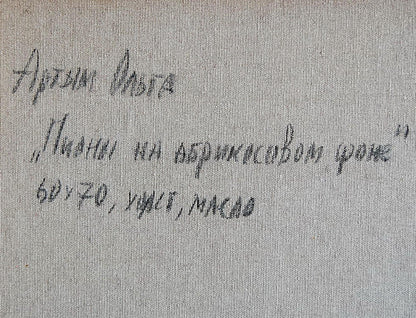 Артым Ольга
„Пионы на абрикосовом фоне"
60х70, холст, масло